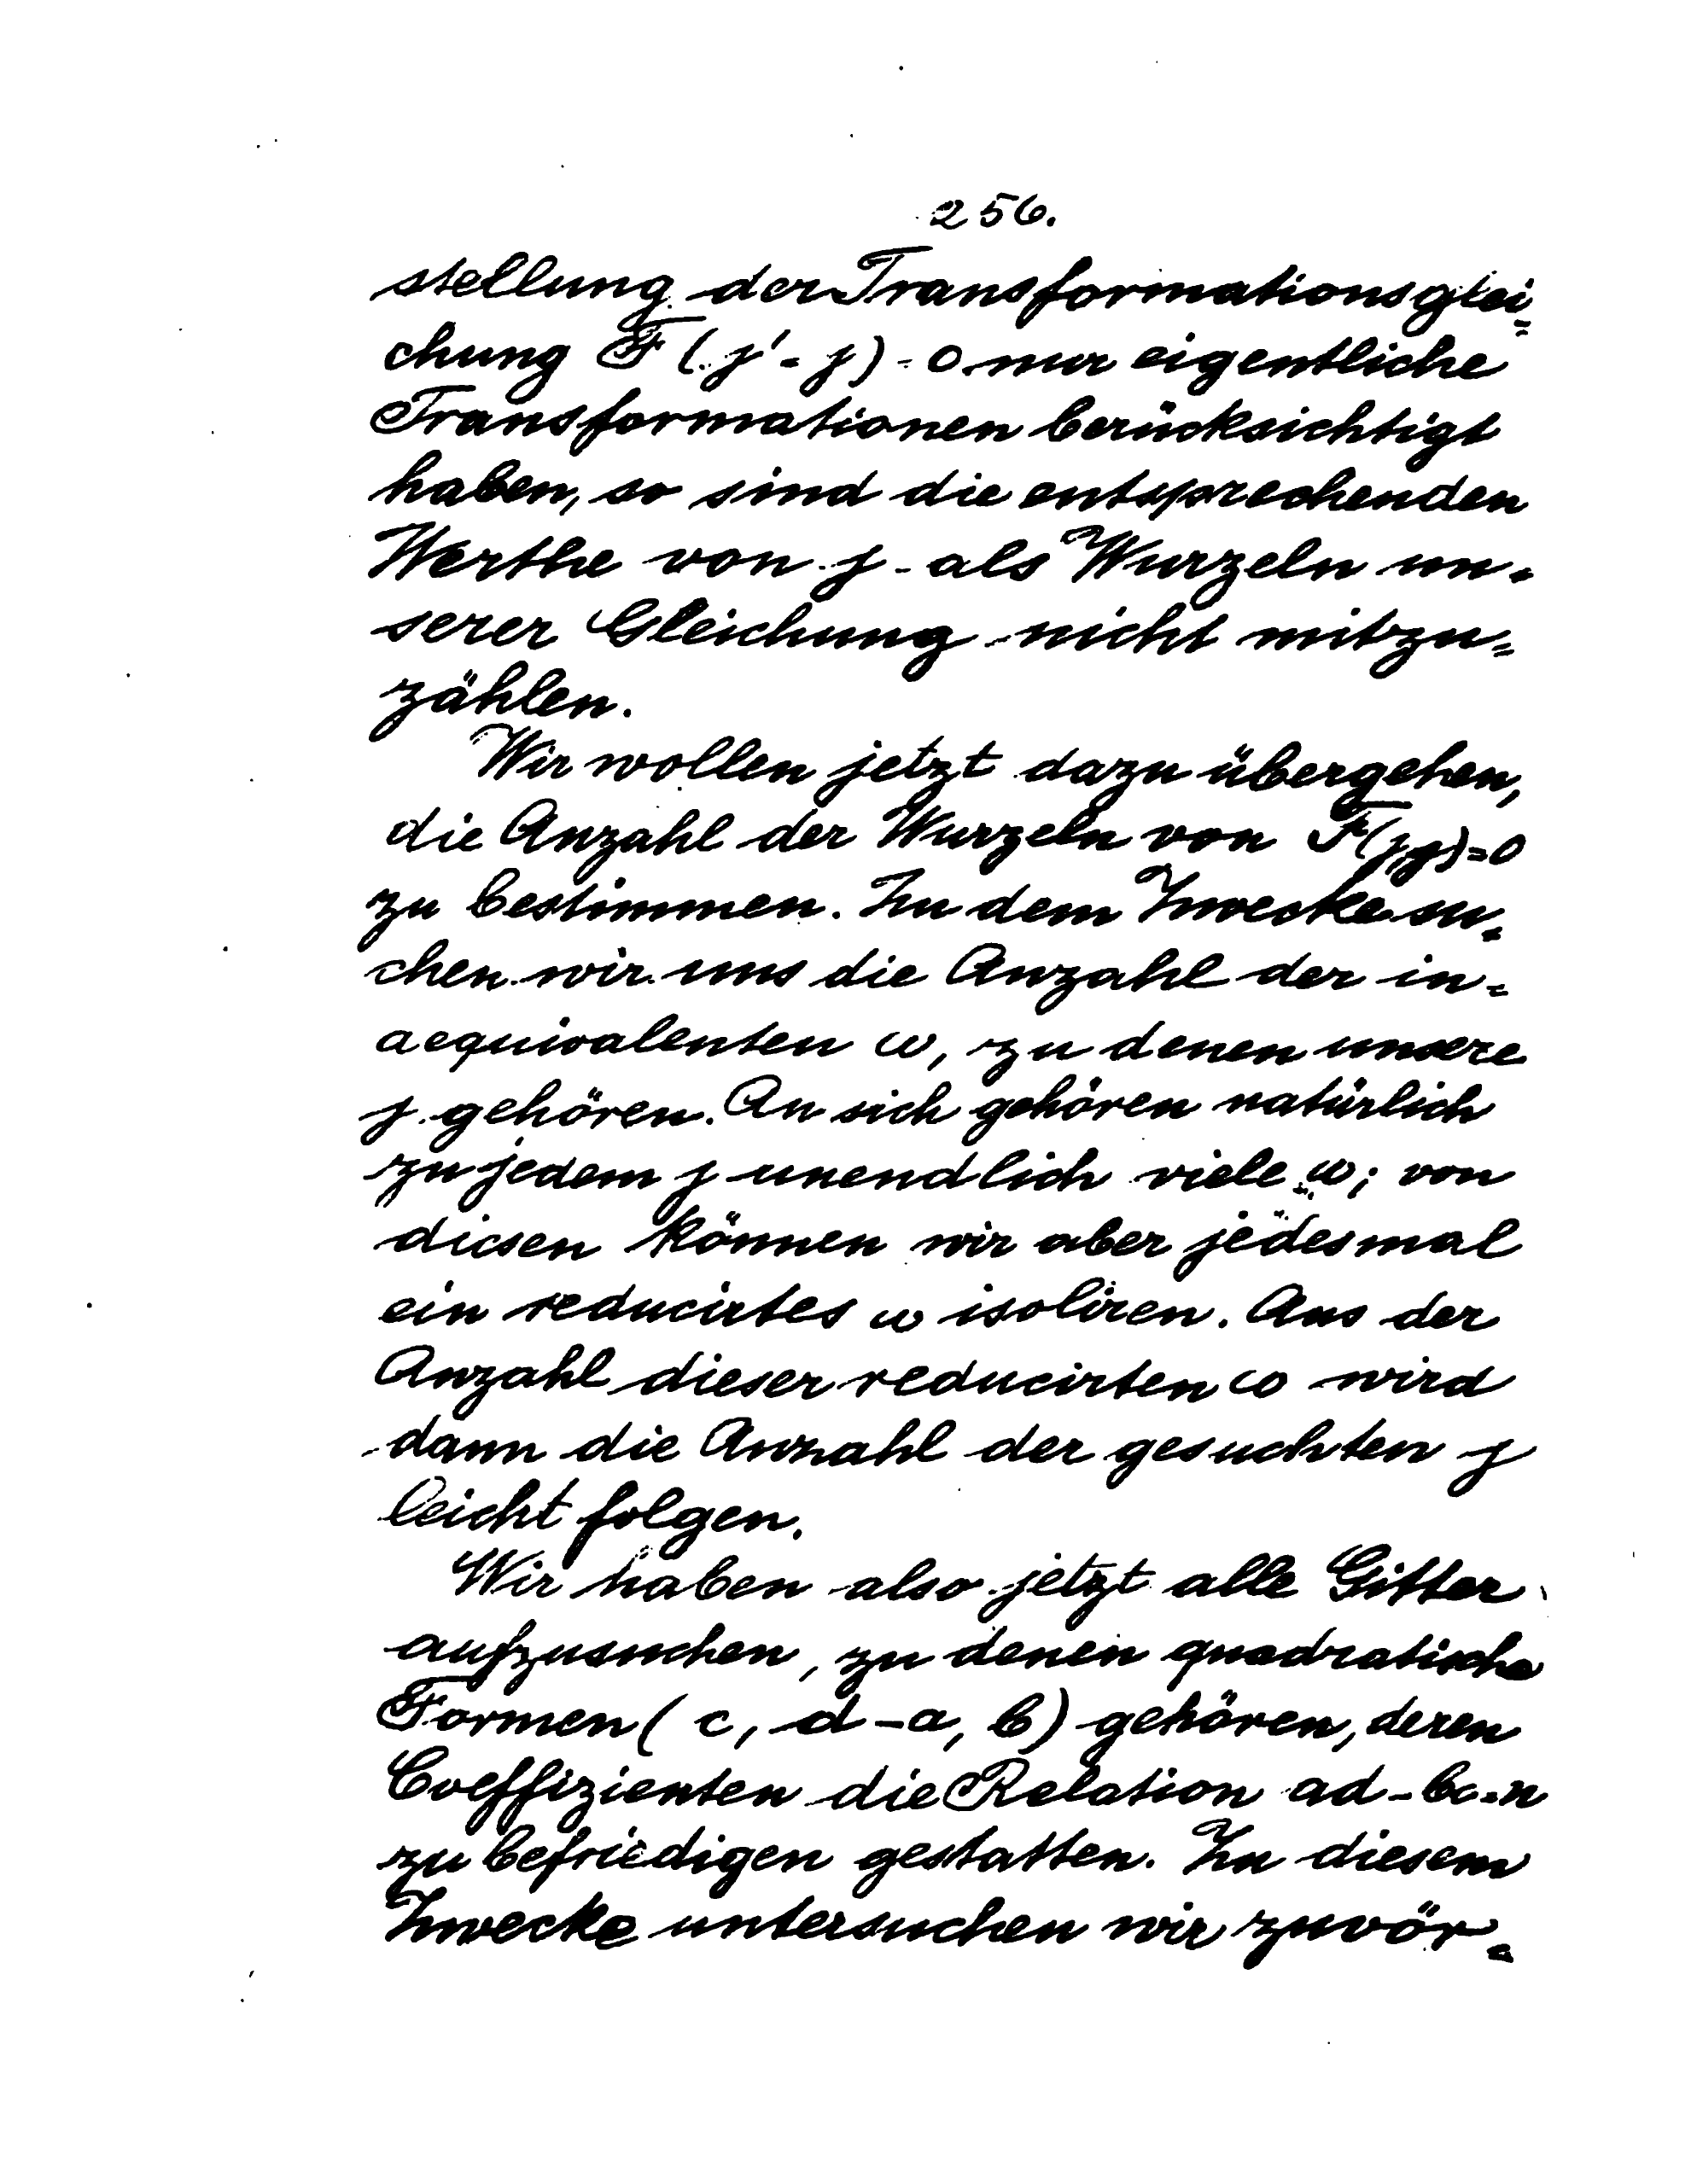 256.
stellung der Transformationsglei=
chung F (j' = j) = 0 nur eigentliche
Transformationen berücksichtigt
haben, so sind die entsprechenden
Werthe von j als Wurzeln un=
serer Gleichung nicht mitzu=
zählen.
Wir wollen jetzt dazu übergehen,
die Anzahl der Wurzeln von F(j,j)=0
zu bestimmen. Zu dem Zwecke su=
chen wir uns die Anzahl der in=
aequivalenten ω, zu denen unsere
j gehören. An sich gehören natürlich
zu jedem j unendlich viele ω; von
diesen können wir aber jedesmal
ein reducirtes ω isoliren. Aus der
Anzahl dieser reducirten ω wird
dann die Anzahl der gesuchten j
leicht folgen.
Wir haben also jetzt alle Gitter
aufzusuchen, zu denen quadratische
Formen (c, d-a, b) gehören, deren
Coeffizienten die Relation ad-bc=n
zu befriedigen gestatten. Zu diesem
Zwecke untersuchen wir zuvör=